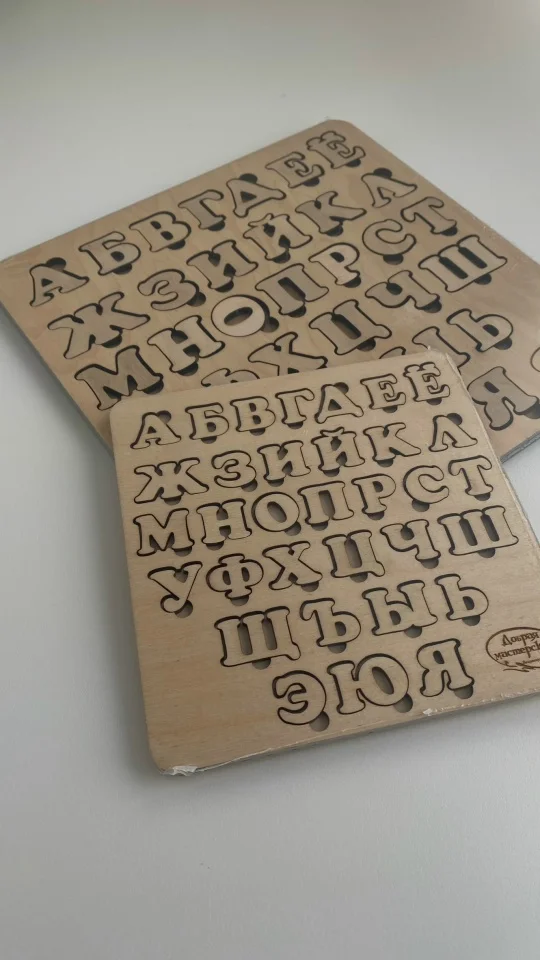 АБВГДЕЁ
ЖЗИЙКЛ
МНОПРСТ
ХЦЧШ
ЫЬ
Я
АБВГДЕЁ
ЖЗИЙКЛ
МНОПРСТ
УФХЦЧШ
ЩЪЫЬ
ЭЮЯ
Добрая